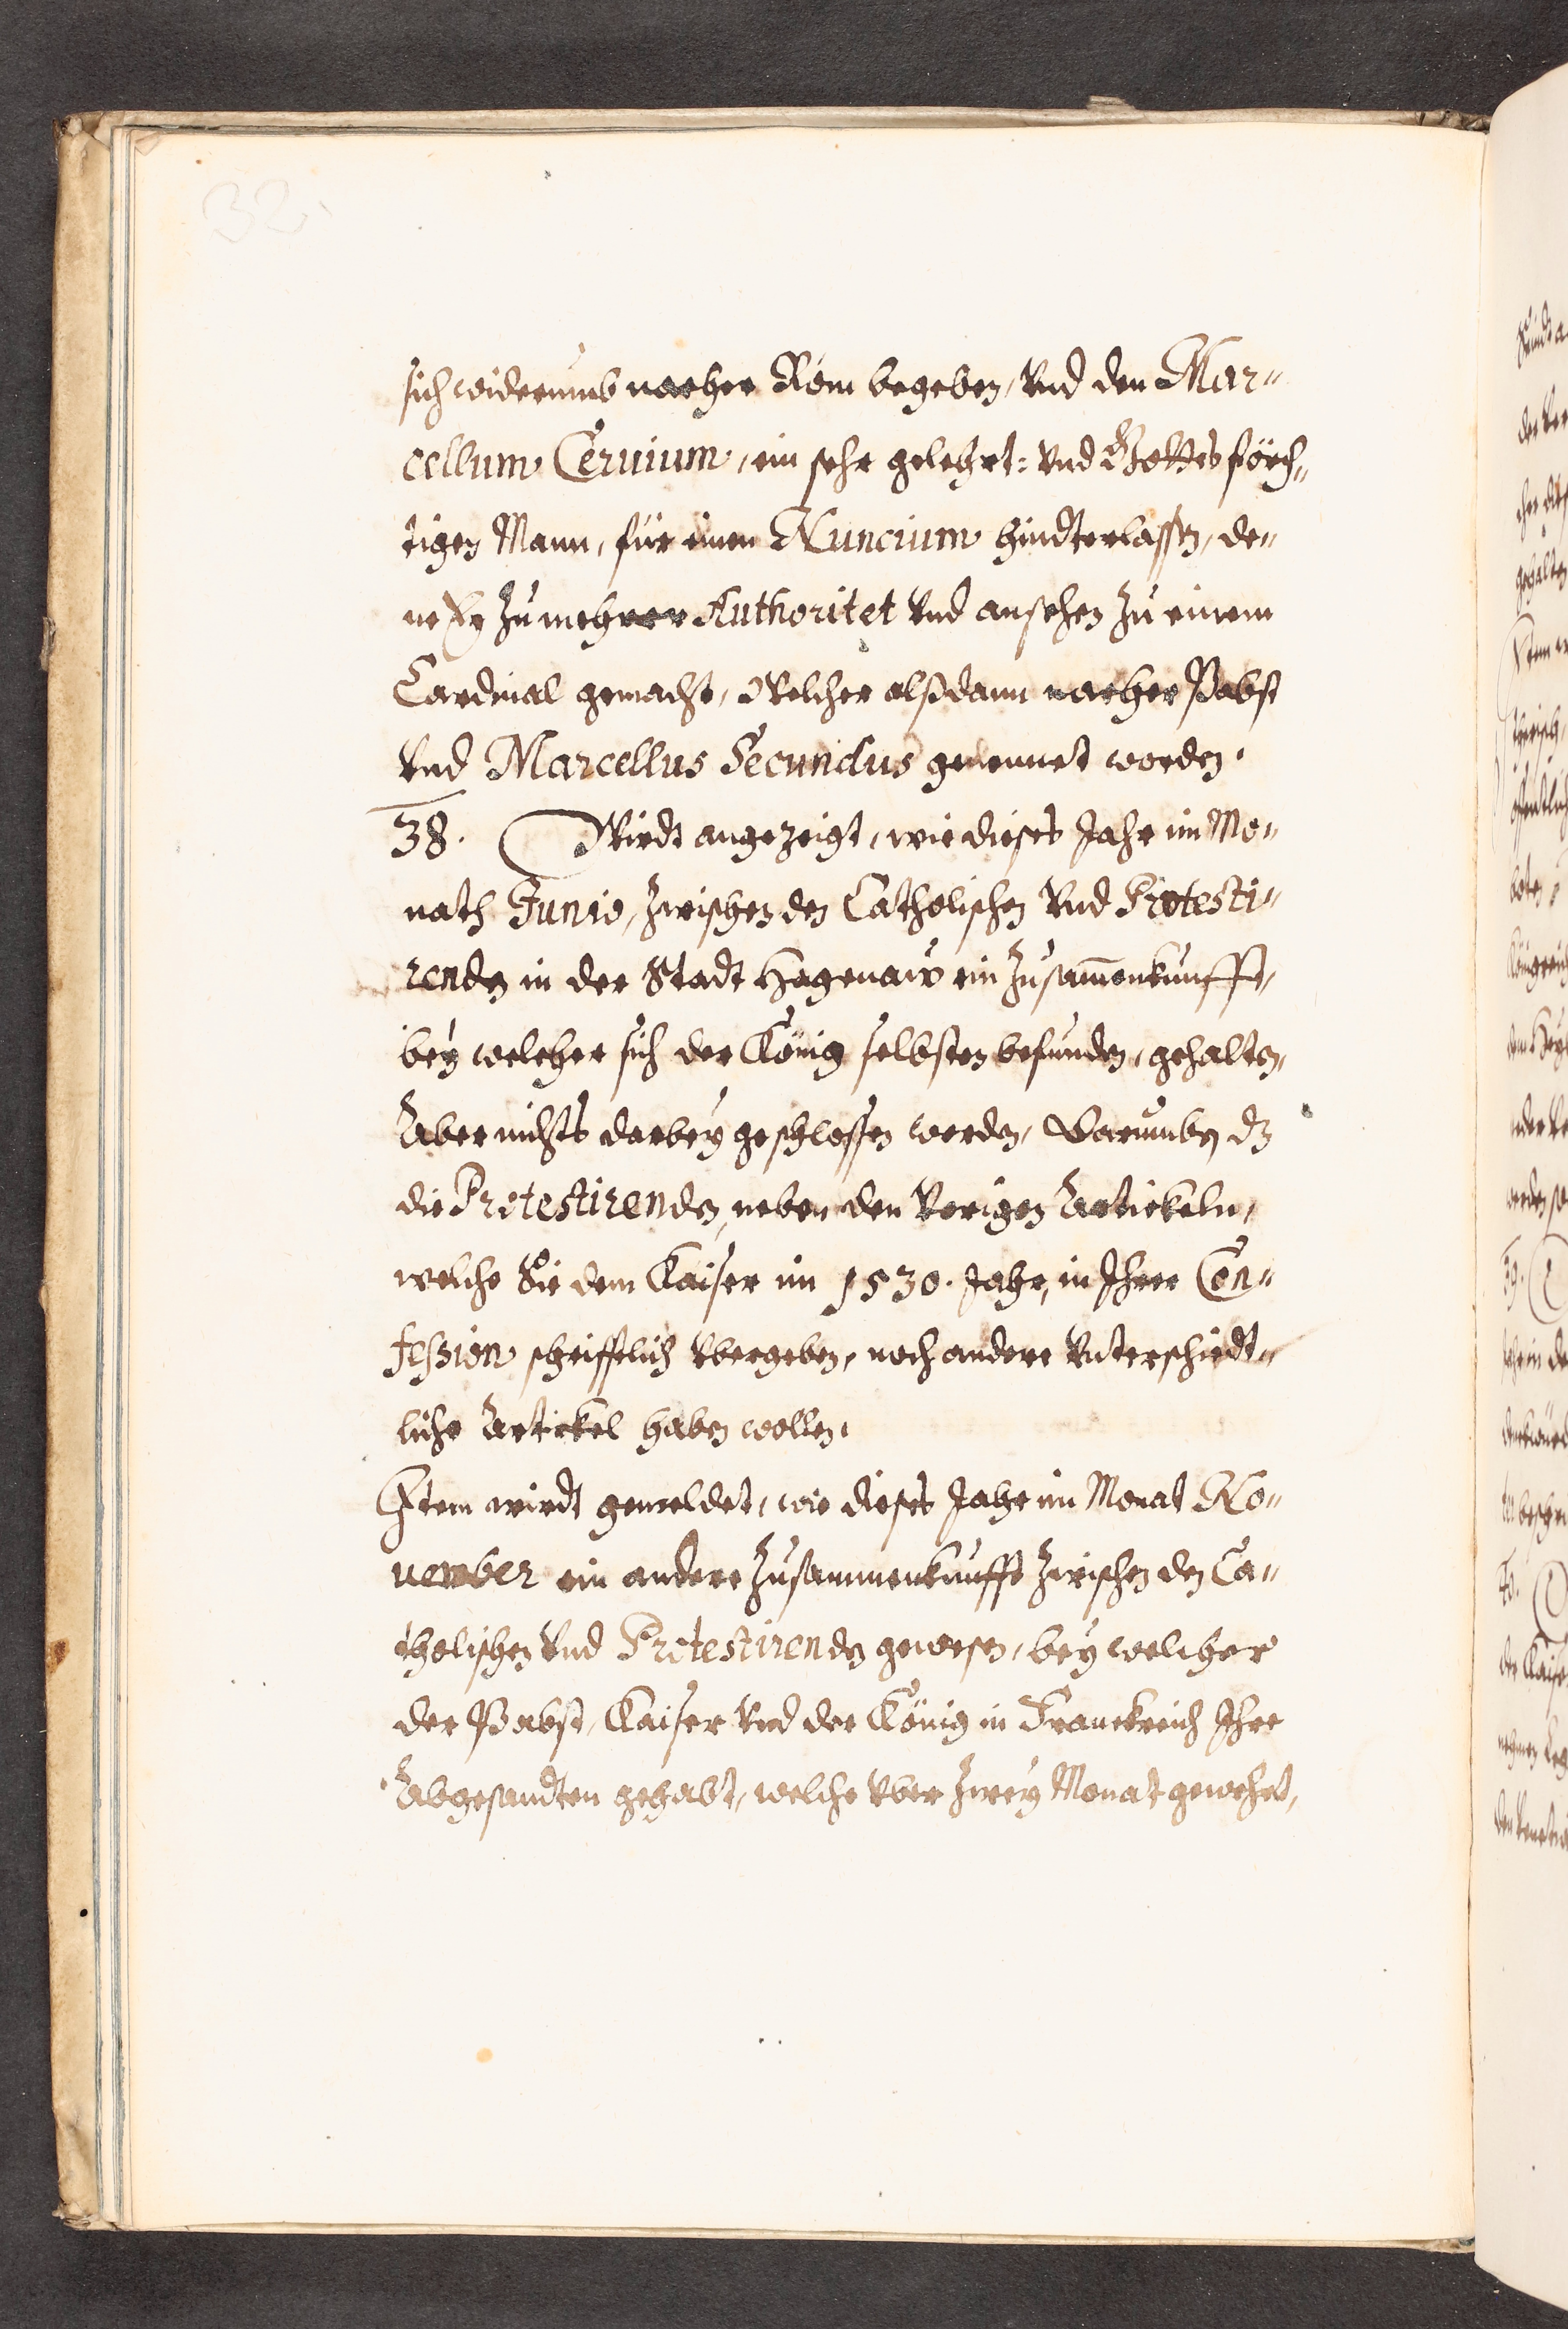 32.
sich widerumb nacher Rom begeben, Vnd den Mar„
cellum Ceruium, ein sehr gelehrt: Vnd Gottsförch„
tigen Mann, für einen Nuncium hindterlassen, de„
ne Er zu mehrer Authoritet Vnd ansehen zu einem
Cardinal gemacht, Welcher alßdann nacher Pabst
Vnd Marcellus Secundus genennet worden.
38. Wirdt angezeigt, wie dieses Jahr im Mo„
nath Junio, zwischen den Catholischen Vnd Protesti„
renden in der Stadt Hagenaw ein Zusam̄enkunfft,
bey welcher sich der König selbsten befunden, gehalten,
Aber nichts darbey geschlossen worden, Darumben dz
die Protestirenden, neben den Vorigen Artickeln,
welche Sie dem Kaiser im 1530. Jahr, in Ihrer Con„
fession schrifftlich Vbergeben, noch andere Vnterschiedt„
liche Artickel haben wollen.
Item wirdt gemeldet, wie dieses Jahr im Monat No„
uember ein andere Zusammenkunfft zwischen den Ca„
tholischen Vnd Protestirenden gewesen, bey welcher
der Pabst, Kaiser Vnd der König in Franckreich Ihre
Abgesandten gehabt, welche Vber zwey Monat gewehrt,